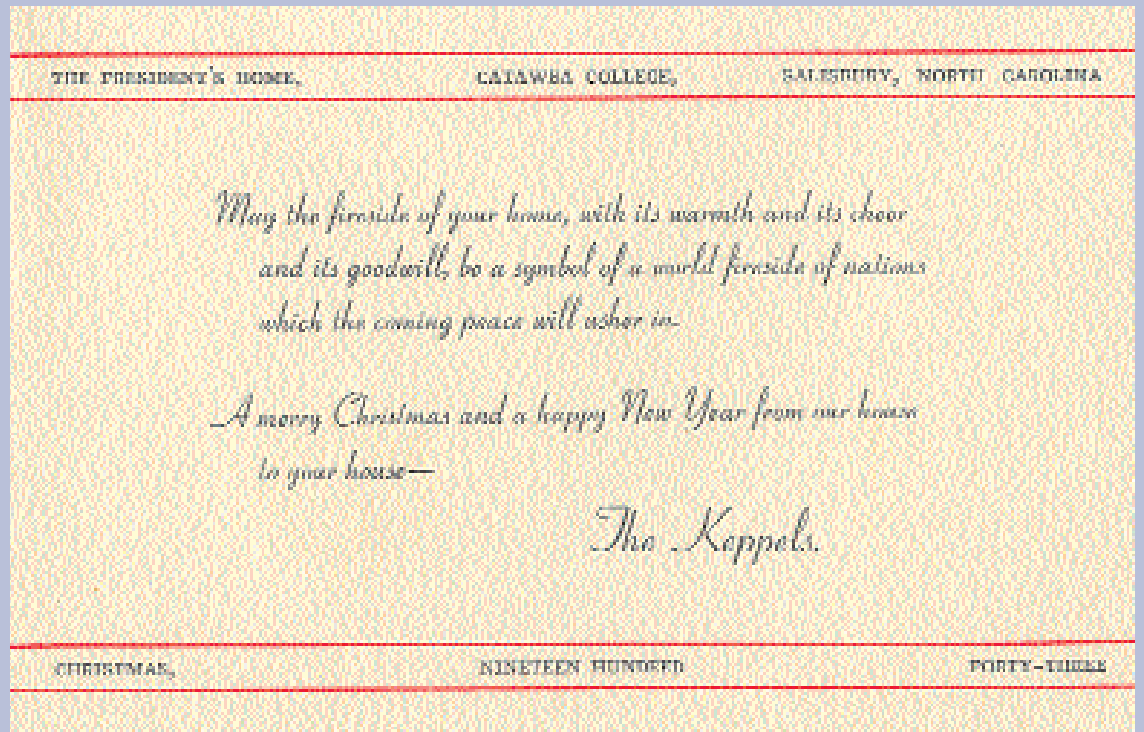 THE PRESIDENT'S HOME, CATAWBA COLLEGE, SALISBURY, NORTH CAROLINA
May the fireside of your home, with its warmth and its cheer
and its goodwill, be a symbol of a world fireside of nations
which the coming peace will usher in.
A merry Christmas and a happy New Year from our house
to your house—
The Keppels.
CHRISTMAS, NINETEEN HUNDRED FORTY-THREE